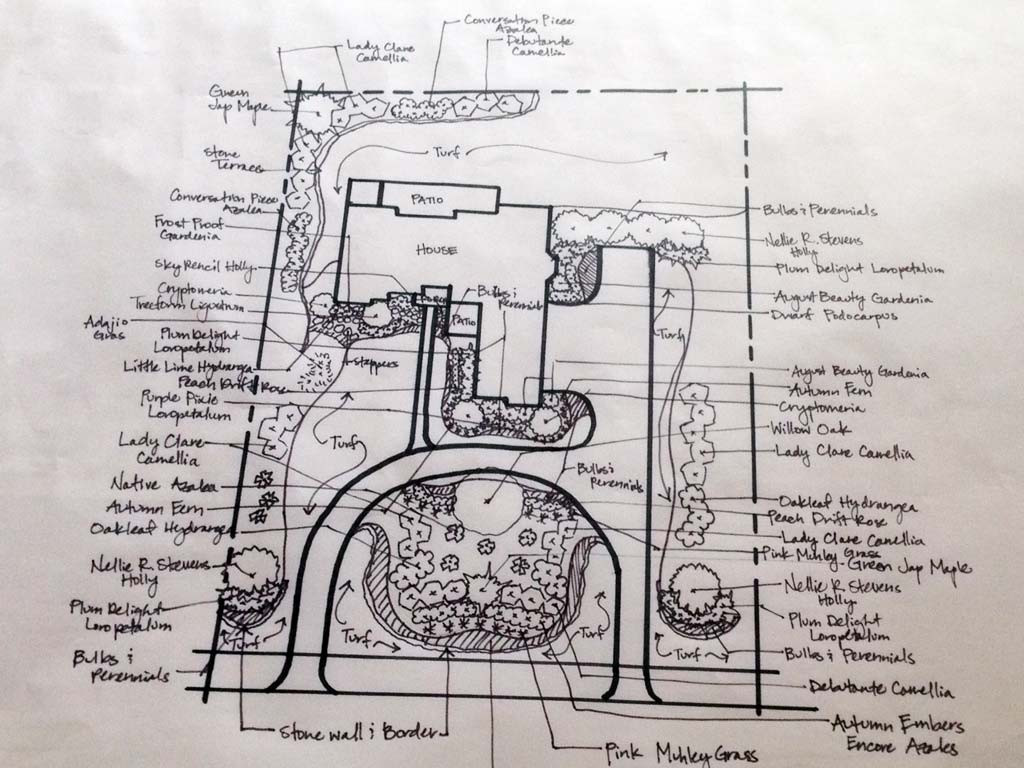 Conversation Piece
Azalea
Debutante
Camellia
Lady Clare
Camellia
Green
Jap Maple
Turf
Stone
Terrace
Conversation Piece
Azalea
Frost Proof
Gardenia
Sky Pencil Holly
Cryptomeria
Treeform Ligustrum
Adajio
Gras
Plum Delight
Loropetalum
Little Lime Hydranga
Peach Drift Rose
Purple Pixie
Loropetalum
Lady Clare
Camellia
Native Azalea
Autumn Fern
Oakleaf Hydranga
Nellie R. Stevens
Holly
Plum Delight
Loropetalum
Bulbs &
Perennials
PATIO
HOUSE
PORCH
PATIO
Bulbs &
Perennials
steppers
Turf
Turf
Bulbs &
Perennials
Turf
Turf
Turf
Turf
Bulbs & Perennials
Nellie R. Stevens
Holly
Plum Delight Loropetalum
August Beauty Gardenia
Dwarf Podocarpus
August Beauty Gardenia
Autumn Fern
Cryptomeria
Willow Oak
Lady Clare Camellia
Oakleaf Hydrangea
Peach Drift Rose
Lady Clare Camellia
Pink Muhley Grass
Green Jap Maple
Nellie R. Stevens
Holly
Plum Delight
Loropetalum
Bulbs & Perennials
Debutante Camellia
Autumn Embers
Encore Azales
Stone wall & Border
Pink Muhley Grass